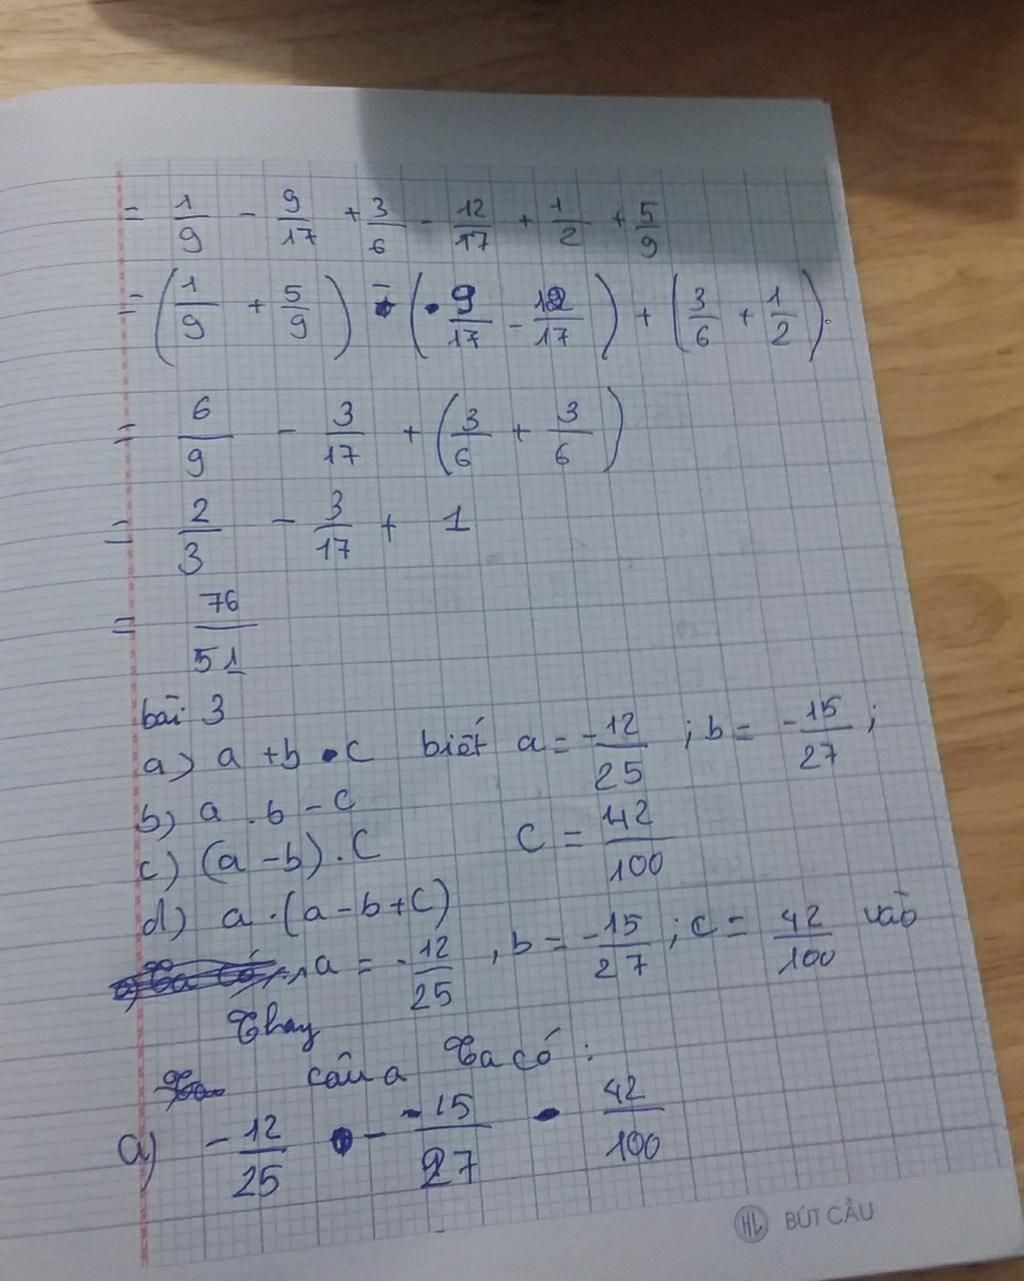 = 1/9 - 9/17 + 3/6 - 12/17 + 1/2 + 5/9
= (1/9 + 5/9) - (9/17 - 12/17) + (3/6 + 1/2).
= 6/9 - 3/17 + (3/6 + 3/6)
= 2/3 - 3/17 + 1
= 76/51
bài 3
a) a + b • c biết a = -12/25 ; b = -15/27 ;
b) a . b - c
c) (a - b) . C C = 42/100
d) a . (a - b + c)
a = -12/25 , b = -15/27 ; c = 42/100 vào
Thay
câu a Ta có :
a) -12/25 • - -15/27 • 42/100
HL BÚT CẦU